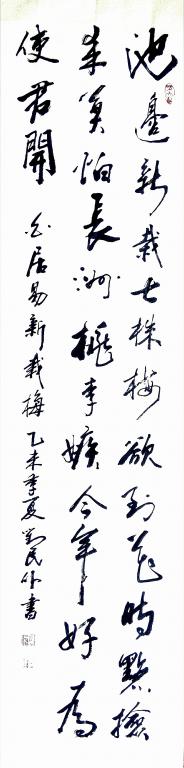 池邊新栽七株梅欲到花時點檢
来莫怕長洲桃李嫉今年好為
使君開 白居易新栽梅 乙未季夏民作書